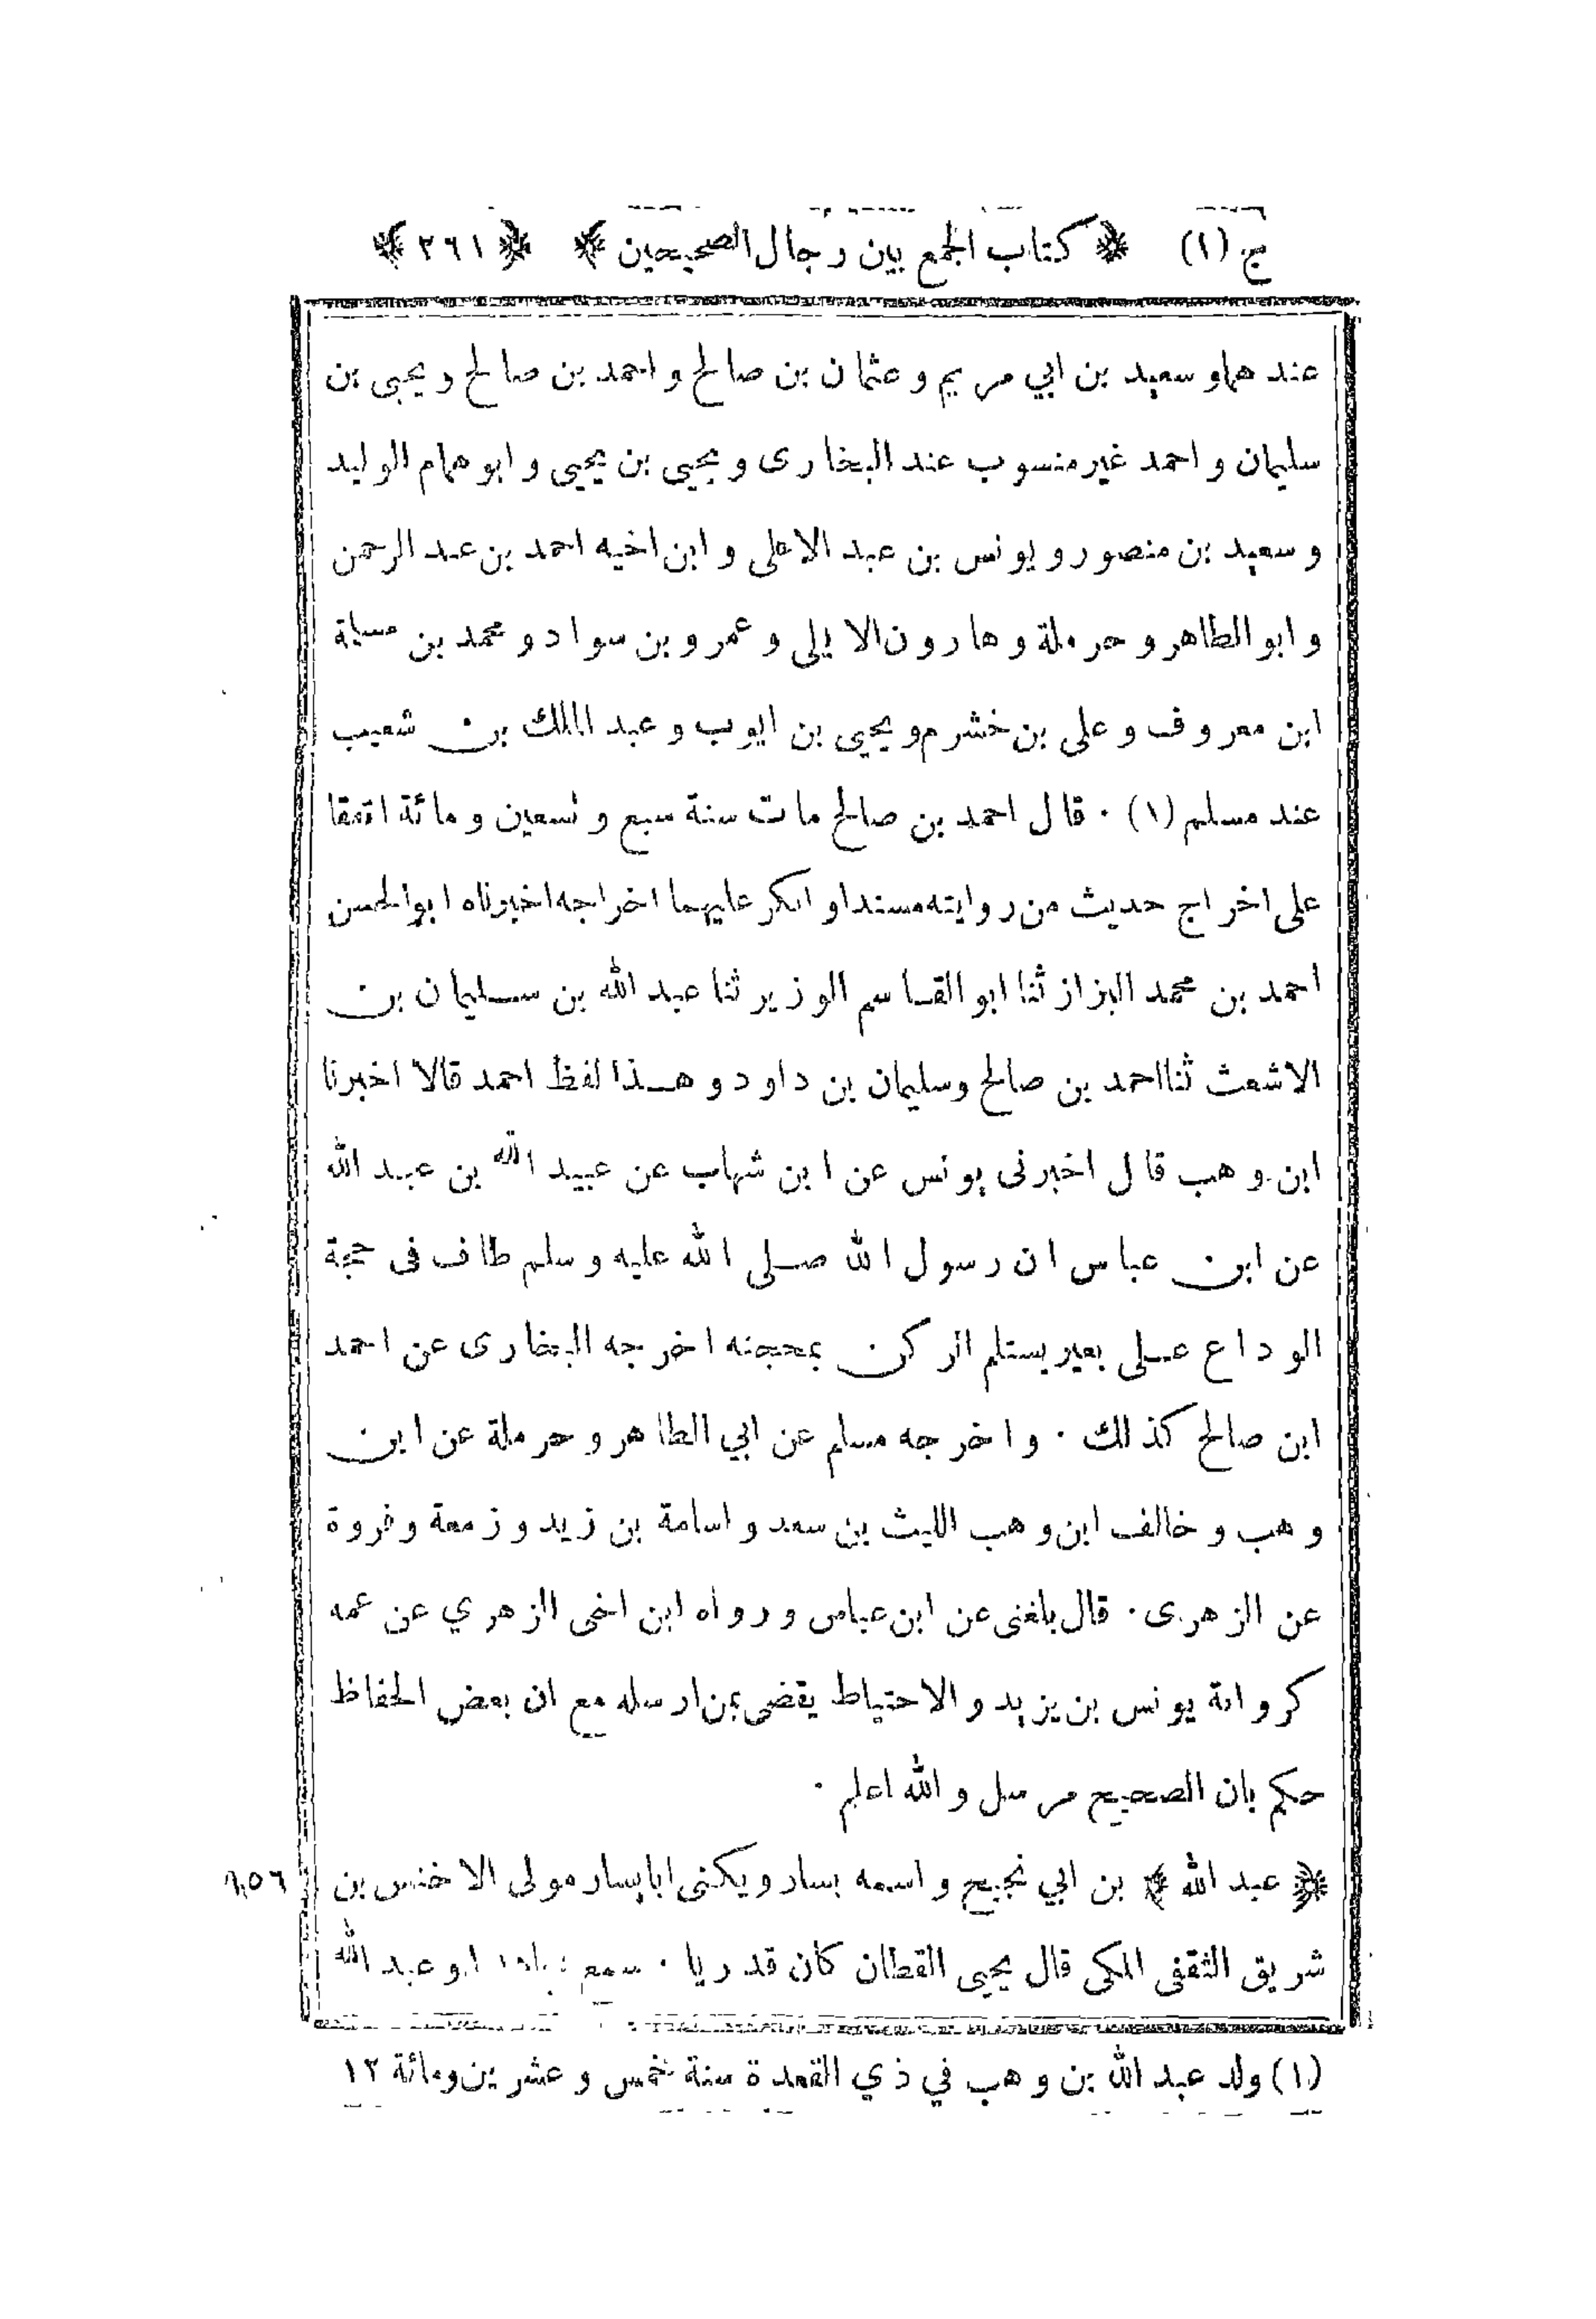 ج (١) ﴿ كتاب الجمع بين رجال الصحيحين ﴾ ﴿ ٢٦١ ﴾
عند هما و سعيد بن ابي مريم و عثمان بن صالح و احمد بن صالح و يحيى بن
سليمان و احمد غير منسوب عند البخارى و يحيى بن يحيى و ابو همام الوليد
و سعيد بن منصور و يونس بن عبد الاعلى و ابن اخيه احمد بن عبد الرحمن
و ابو الطاهر و حرملة و هارون الايلى و عمرو بن سواد و محمد بن سلمة
ابن معروف و على بن خشرم و يحيى بن ايوب و عبد الملك بن شعيب
عند مسلم (١) · قال احمد بن صالح مات سنة سبع و تسعين و مائة اتفقا
على اخراج حديث من روايته مسندا و انكر عليهما اخراجه اخبرناه ابو الحسن
احمد بن محمد البزاز ثنا ابو القاسم الوزير ثنا عبد الله بن سليمان بن
الاشعث ثنا احمد بن صالح وسليمان بن داود و هذا لفظ احمد قالا اخبرنا
ابن وهب قال اخبرنى يونس عن ابن شهاب عن عبيد الله بن عبد الله
عن ابن عباس ان رسول الله صلى الله عليه و سلم طاف فى حجة
الوداع على بعير يستلم الركن بمحجنه اخرجه البخارى عن احمد
ابن صالح كذلك · و اخرجه مسلم عن ابي الطاهر و حرملة عن ابن
وهب و خالف ابن وهب الليث بن سعد و اسامة بن زيد و زمعة و فروة
عن الزهرى · قال بلغنى عن ابن عباس و رواه ابن اخى الزهري عن عمه
كرواية يونس بن يزيد و الاحتياط يقضى بمن ارسله مع ان بعض الحفاظ
حكم بان الصحيح مرسل و الله اعلم ·
﴿ عبد الله ﴾ بن ابي نجيح و اسمه يسار و يكنى ابا يسار مولى الاخنس بن
شريق الثقفى المكى قال يحيى القطان كان قدريا · سمع ابو عبد الله
(١) ولد عبد الله بن وهب في ذي القعدة سنة خمس و عشرين ومائة ١٢